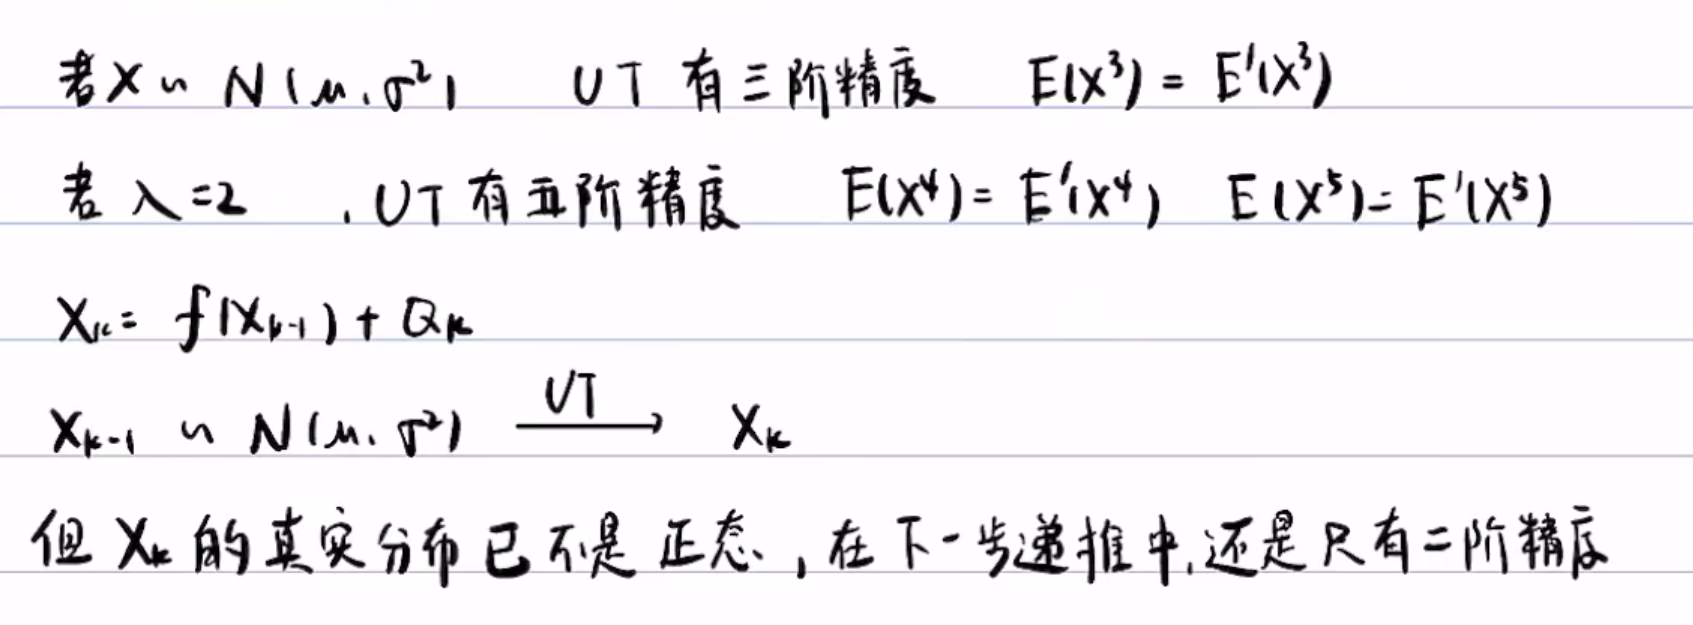 若 X ~ N(μ, σ²) UT 有三阶精度 E(X³) = E'(X³)
若 λ=2 , UT 有五阶精度 E(X⁴) = E'(X⁴) E(X⁵) = E'(X⁵)
Xₖ = f(Xₖ₋₁) + Qₖ
Xₖ₋₁ ~ N(μ, σ²) UT→ Xₖ
但 Xₖ 的真实分布已不是正态, 在下一步递推中, 还是只有二阶精度